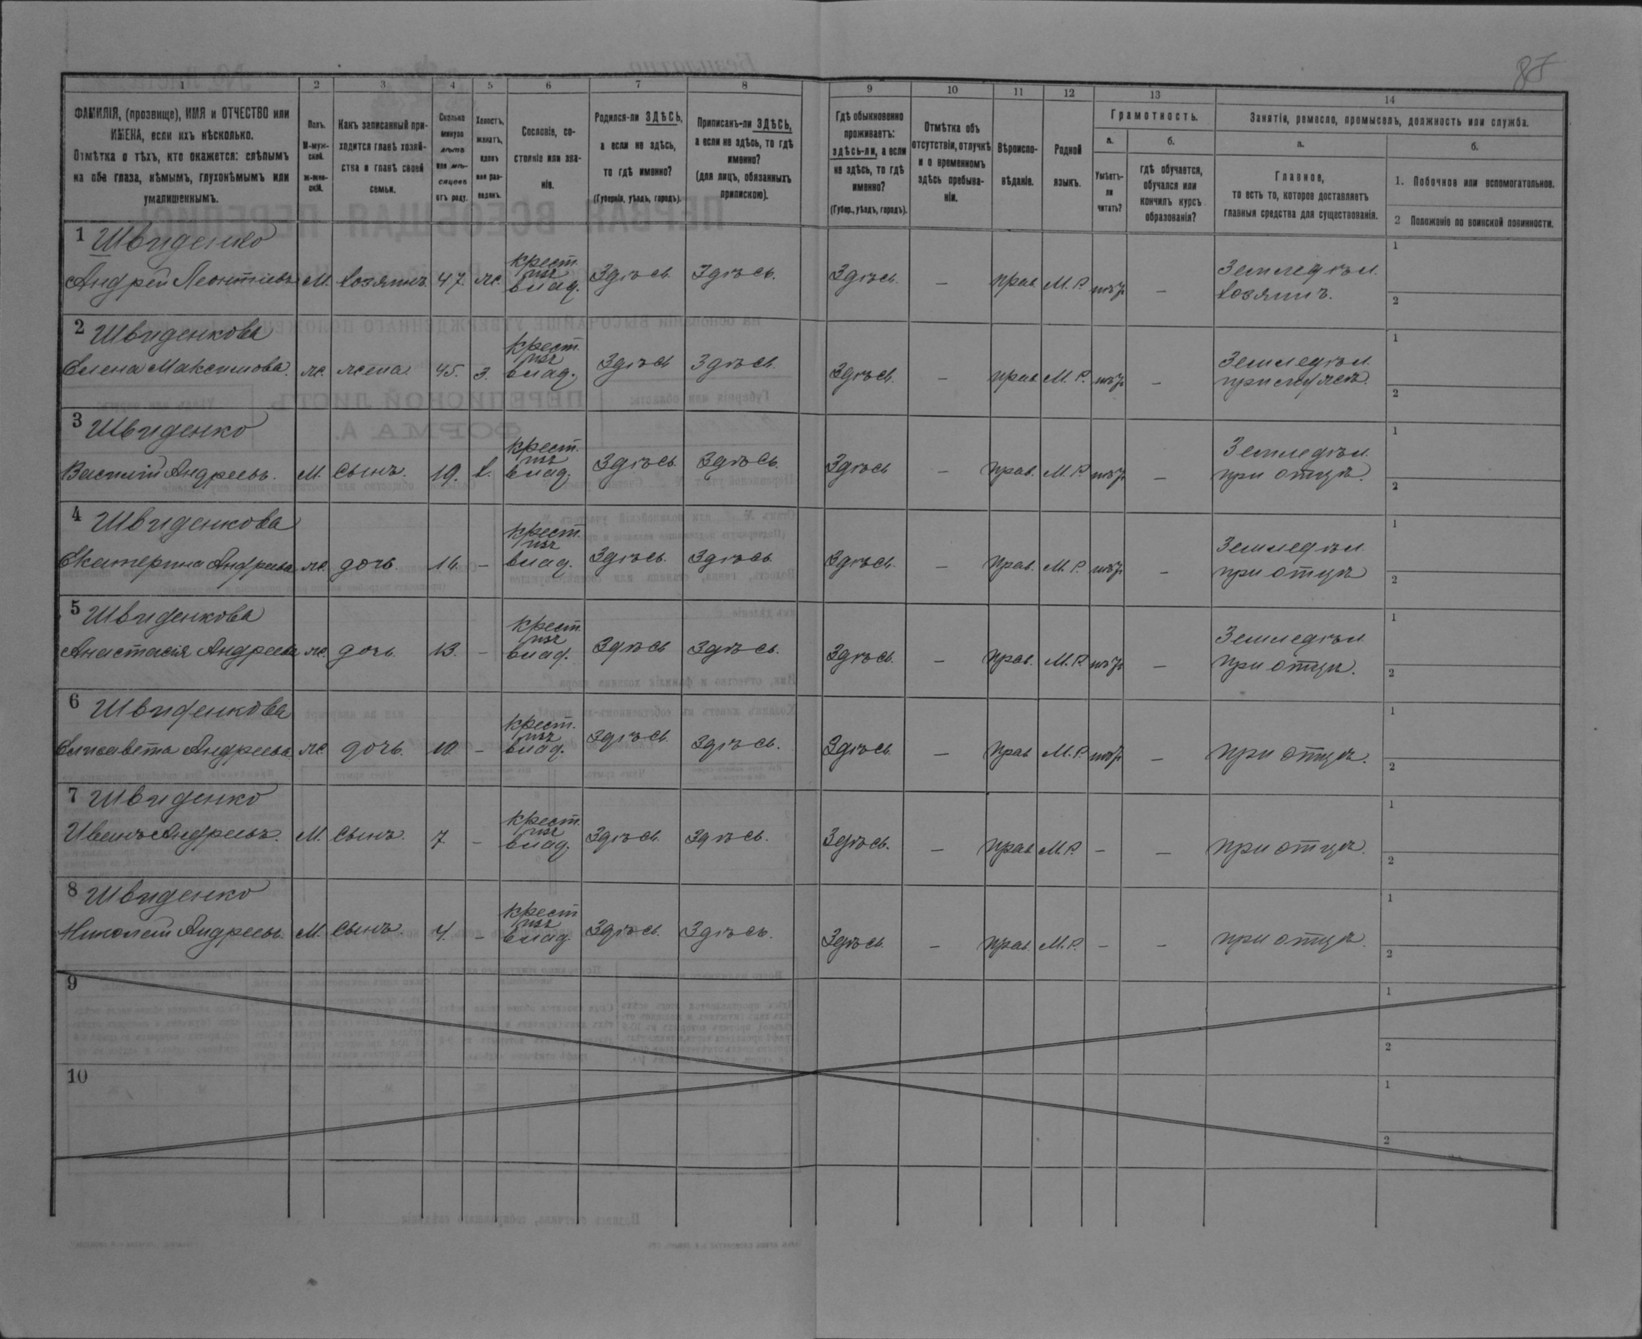 87
1
2
3
4
5
6
7
8
9
10
11
12
13
14
ФАМИЛІЯ, (прозвище), ИМЯ и ОТЧЕСТВО или
ИМЕНА, если ихъ нѣсколько.
Отмѣтка о тѣхъ, кто окажется: слѣпымъ
на оба глаза, нѣмымъ, глухонѣмымъ или
умалишеннымъ.
Полъ.
М-муж-
ской.
Ж-жен-
скій.
Какъ записанный при-
ходится главѣ хозяй-
ства и главѣ своей
семьи.
Сколько
минуло
лѣтъ
или мѣ-
сяцевъ
отъ роду.
Холостъ,
женатъ,
вдовъ
или раз-
веденъ.
Сословіе, со-
стояніе или зва-
ніе.
Родился-ли ЗДѢСЬ,
а если не здѣсь,
то гдѣ именно?
(Губернія, уѣздъ, городъ).
Приписанъ-ли ЗДѢСЬ,
а если не здѣсь, то гдѣ
именно?
(для лицъ, обязанныхъ
припискою).
Гдѣ обыкновенно
проживаетъ:
здѣсь-ли, а если
не здѣсь, то гдѣ
именно?
(Губер., уѣздъ, городъ).
Отмѣтка объ
отсутствіи, отлучкѣ
и о временномъ
здѣсь пребыва-
ніи.
Вѣроиспо-
вѣданіе.
Родной
языкъ.
Грамотность.
а.
Умѣетъ-
ли
читать?
б.
гдѣ обучается,
обучался или
кончилъ курсъ
образованія?
Занятіе, ремесло, промыселъ, должность или служба.
а.
Главное,
то есть то, которое доставляетъ
главныя средства для существованія.
б.
1. Побочное или вспомогательное.
2 Положеніе по воинской повинности.
1 Швиденко
Андрей Леонтіевъ М. хозяинъ 47. ж. крест. влад. Здѣсь Здѣсь Здѣсь — прав. М.Р. — Земледѣл. хозяинъ. 1 2
2 Швиденкова
Елена Максимова. ж. жена 45. з. крест. влад. Здѣсь Здѣсь Здѣсь — прав. М.Р. — Земледѣл. при мужѣ. 1 2
3 Швиденко
Василій Андреевъ. М. сынъ. 19. х. крест. влад. Здѣсь Здѣсь Здѣсь — прав. М.Р. — Земледѣл. при отцѣ. 1 2
4 Швиденкова
Екатерина Андреева ж. дочь. 16. — крест. влад. Здѣсь Здѣсь Здѣсь — прав. М.Р. — Земледѣл. при отцѣ 1 2
5 Швиденкова
Анастасія Андреева ж. дочь 13. — крест. влад. Здѣсь Здѣсь Здѣсь — прав. М.Р. — Земледѣл. при отцѣ. 1 2
6 Швиденкова
Елисавета Андреева ж. дочь. 10 — крест. влад. Здѣсь Здѣсь. Здѣсь — прав. М.Р. — при отцѣ. 1 2
7 Швиденко
Иванъ Андреевъ. М. сынъ. 7 — крест. влад. Здѣсь Здѣсь. Здѣсь. — прав. М.Р. — — при отцѣ. 1 2
8 Швиденко
Николай Андреевъ. М. сынъ. 4. — крест. влад. Здѣсь. Здѣсь. Здѣсь — прав. М.Р. — — при отцѣ. 1 2
9 1 2
10 1 2